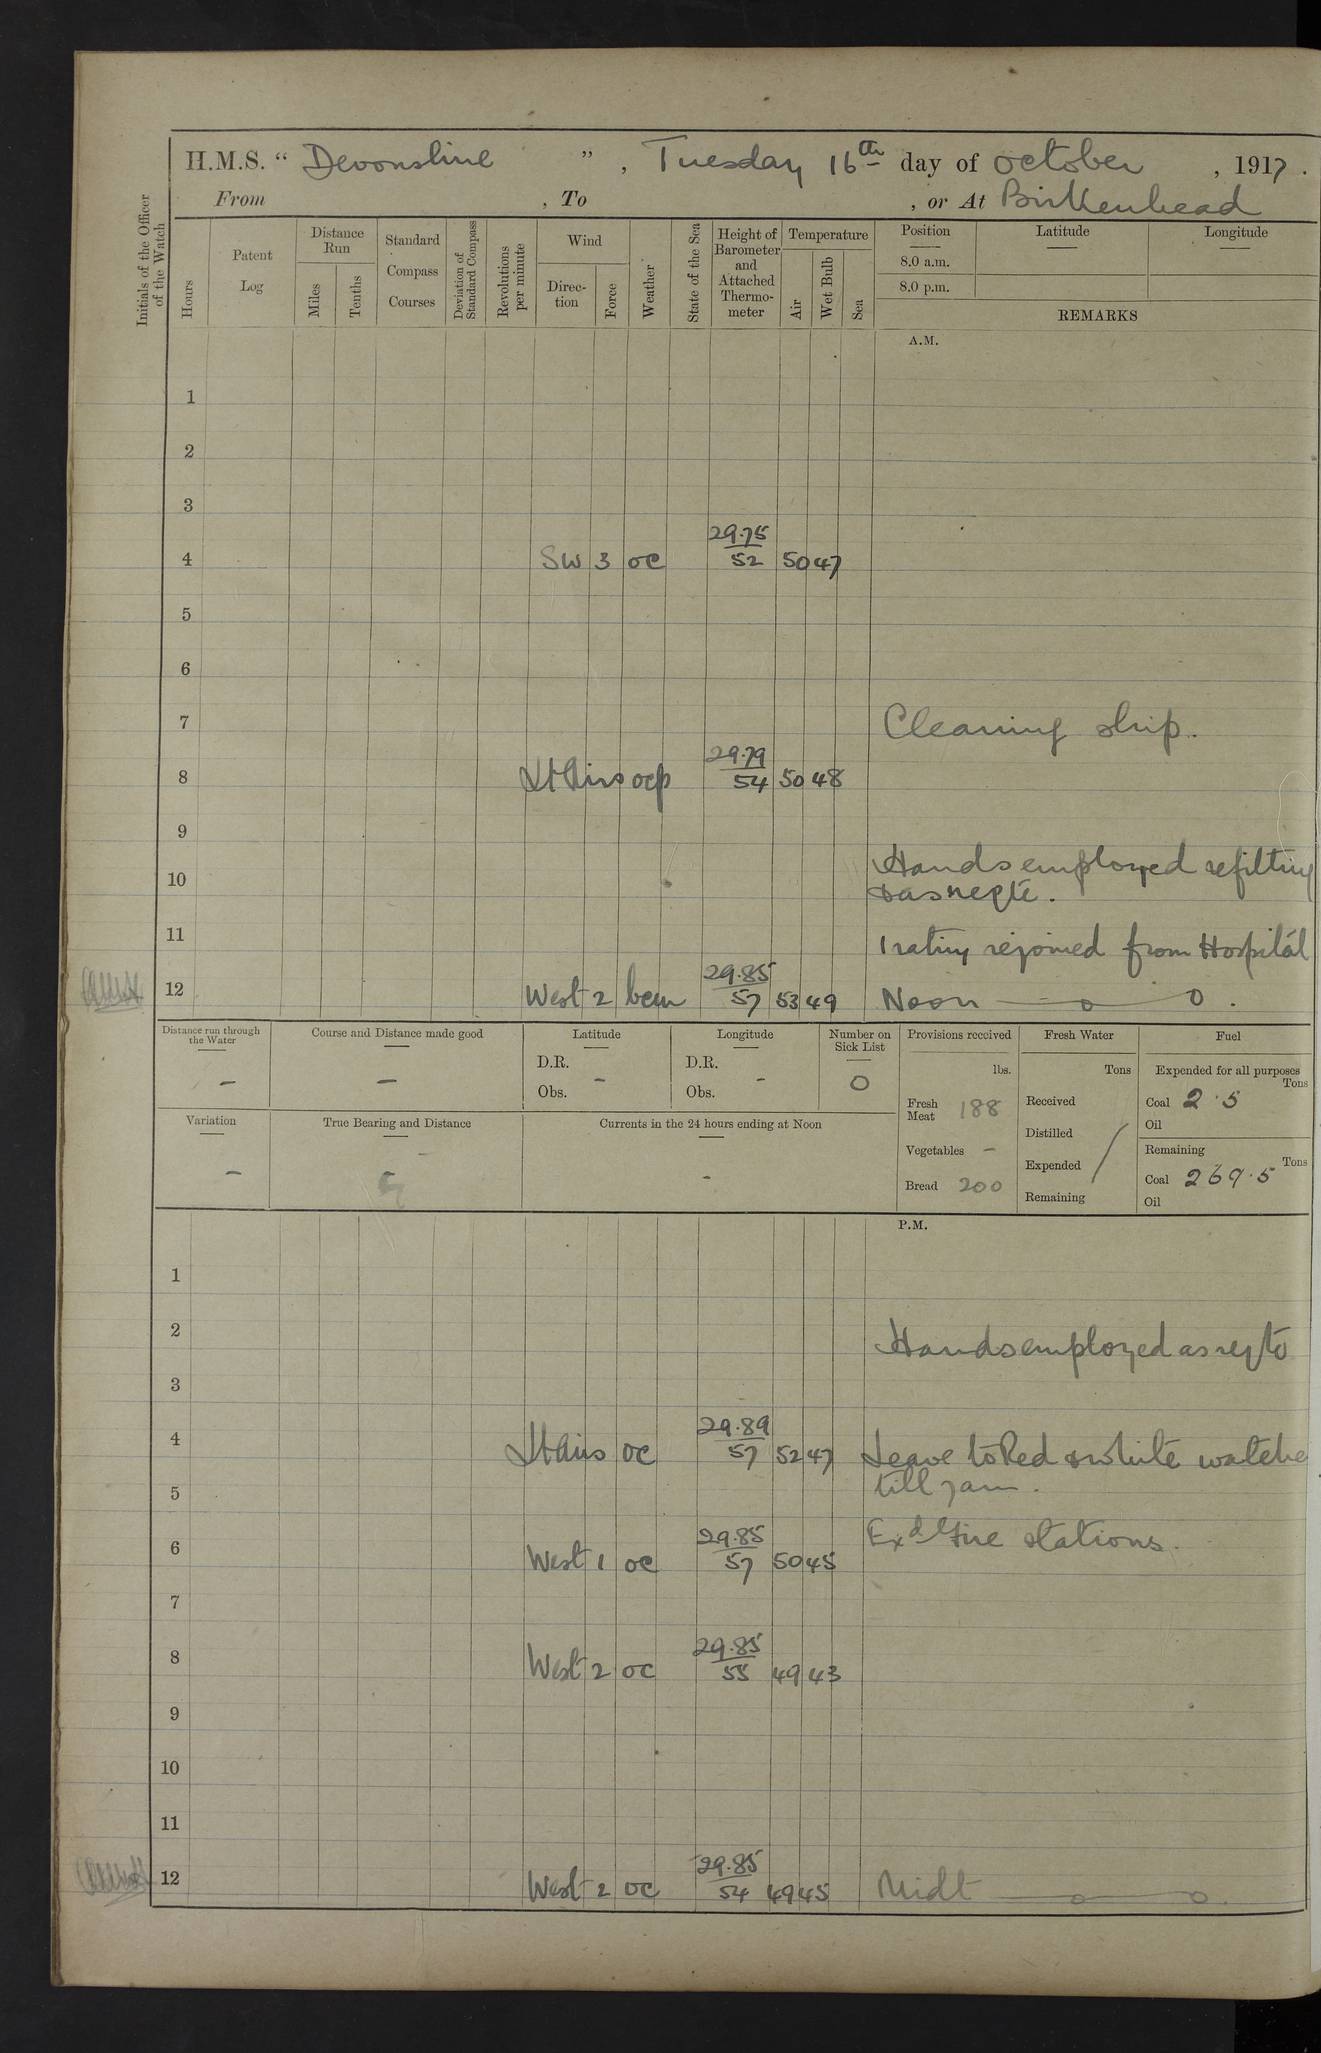 H.M.S. “ Devonshire ” , Tuesday 16th day of October , 1917 .
From , To , or At Birkenhead
Initials of the Officer of the Watch
Hours
Patent Log
Distance Run
Miles
Tenths
Standard Compass Courses
Deviation of Standard Compass
Revolutions per minute
Wind
Direction
Force
Weather
State of the Sea
Height of Barometer and Attached Thermometer
Temperature
Air
Wet Bulb
Sea
Position
8.0 a.m.
8.0 p.m.
Latitude
Longitude
REMARKS
A.M.
1
2
3
29.75
4 SW 3 oc 52 50 47
5
6
7 Cleaning ship.
29.79
8 Lt Airs ocp 54 50 48
9
Hands employed refitting
10 & as reqte.
11 1 rating rejoined from Hospital
29.85
12 West 2 bcm 57 53 49 Noon
Distance run through the Water
–
Course and Distance made good
–
Latitude
D.R.
Obs. –
Longitude
D.R.
Obs. –
Number on Sick List
0
Provisions received
lbs.
Fresh Meat 188
Vegetables –
Bread 200
Fresh Water
Tons
Received
Distilled
Expended
Remaining
Fuel
Expended for all purposes
Tons
Coal 2.5
Oil
Remaining
Tons
Coal 269.5
Oil
Variation
–
True Bearing and Distance
–
Currents in the 24 hours ending at Noon
-
P.M.
1
2 Hands employed as reqte
3
29.89
4 Lt Airs oc 57 52 47 Leave to Red & White watche
5 till 7am.
29.85
6 West 1 oc 57 50 45 Exd Fire stations.
7
29.85
8 West 2 oc 55 49 43
9
10
11
29.85
12 West 2 oc 54 49 45 Midt